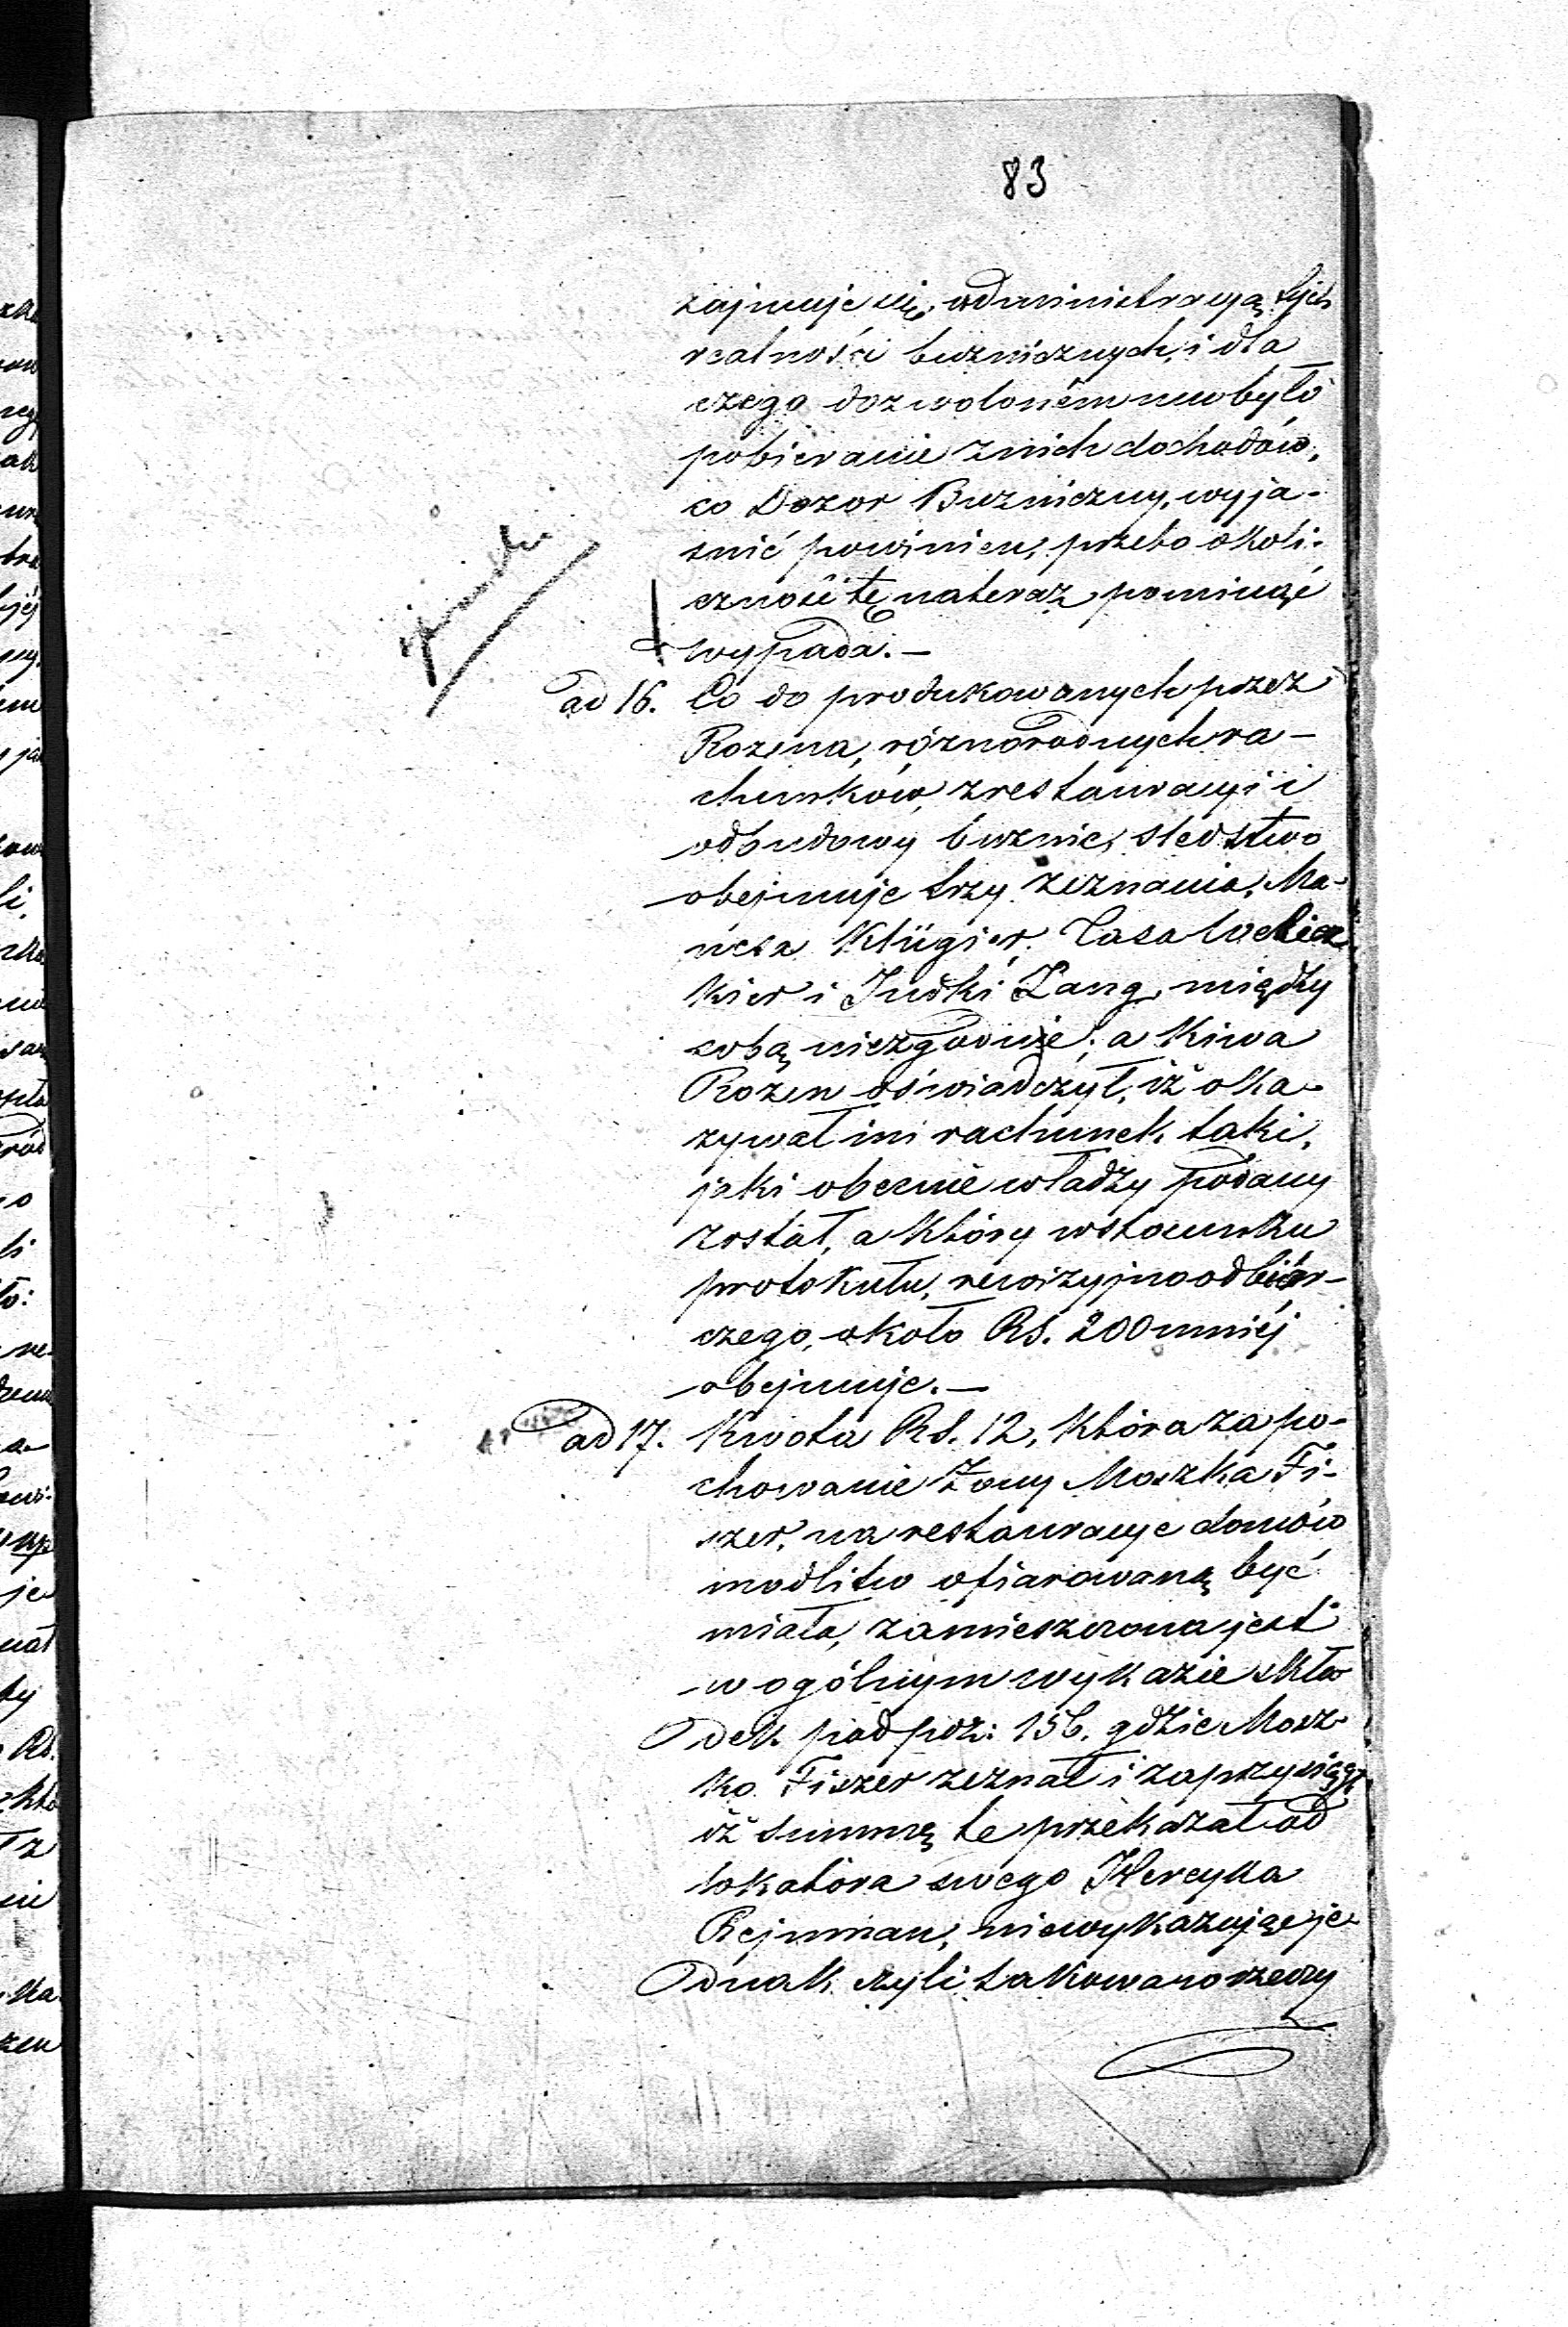 83
zajmuje się administracyą tych
realności bużnicznych, i dla
czego dozwoloném mu było
pobieranie z nich dochodów,
co Dozor Bużniczny, wyja-
snić powinien, przeto okoli-
czność tę nateraz pominąć
wypada. —
ad 16. Co do produkowanych przez
Rozena, różnorodnych ra-
chunków, z restauracyi i
odbudowy bużnic, śledztwo
obejmuje trzy zeznania, Ma-
nesa Klügier,
kier i Judki Lang, między
sobą niezgodnie; a Kiwa
Rozen oświadczył, iż oka-
zywał im rachunek taki,
jaki obecnie władzy podany
został, a który w stosunku
protokułu, rewizyjno odbiór-
czego, około Rs. 200 mniéj
obejmuje. —
ad 17. Kwota Rs. 12, która za po-
chowanie żony Moszka Fi-
szer, na restauracye domów
modlitw ofiarowaną być
miała, zamieszczona jest
w ogólnym wykazie skła
dek pod poz: 156. gdzie Mosz-
ko Fiszer zeznał i zaprzysiągł
iż summę te przekazał od
lokatora swego Hercyka
Rejnman, niewykazując je-
dnak czyli takowa rzeczy